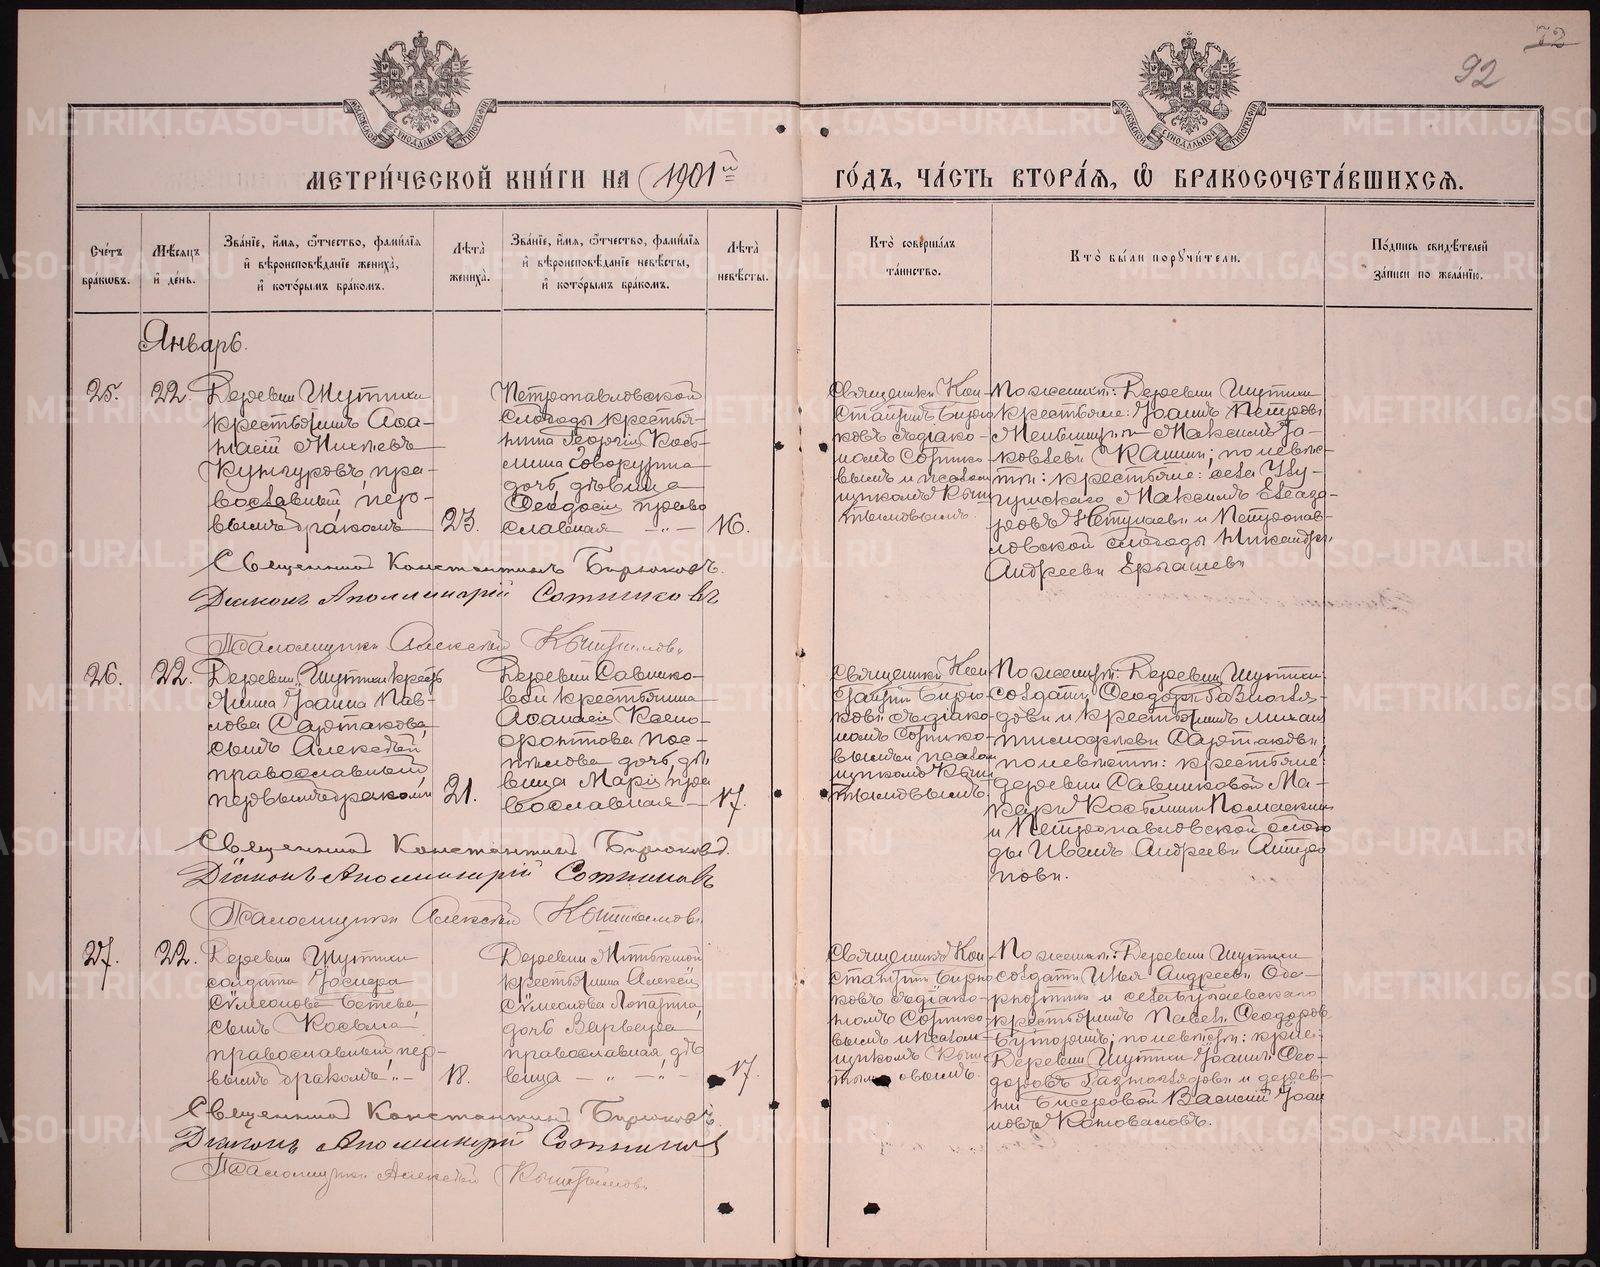 72
92
МЕТРИ́ЧЕСКОЙ КНИ́ГИ НА 1901й ГО́ДЪ, ЧА́СТЬ ВТОРА́Я, Ѡ҆ БРАКОСОЧЕТА́ВШИХСѦ.
Сче́тъ бра́кѡвъ.
Мѣ́сѧцъ и҆ де́нь.
Зва́нїе, и҆́мѧ, ѻ҆́тчество, фами́лїѧ
и҆ вѣроисповѣ́данїе жениха̀,
и҆ кото́рымъ бра́комъ.
Лѣта̀ жениха̀.
Зва́нїе, и҆́мѧ, ѻ҆́тчество, фами́лїѧ
и҆ вѣроисповѣ́данїе невѣ́сты,
и҆ кото́рымъ бра́комъ.
Лѣта̀ невѣ́сты.
Кто̀ соверша́лъ
та́инство.
Кто̀ бы́ли порꙋчи́тели.
По́дпись свидѣ́телей
за́писи по жела́нїю.
Январь.
25.
22.
Деревни Шутихи
крестьянинъ Аѳа-
насій Михѣевъ
Кунгуровъ, пра-
вославный, пер-
вымъ бракомъ
23.
Петропавловской
слободы крестья-
нина Георгія Козь-
мина Говорухина
дочь, дѣвица
Ѳеодосія, право
славная
16.
Священникъ Кон
стантинъ Бирю
ковъ съ діако-
номъ Сотнико-
вымъ и псалом
щикомъ Кыш
тымовымъ.
По женихѣ: Деревни Шутихи
крестьяне: Іоаннъ Петровъ
Меньшихъ и Максимъ Яа-
ковлевъ; по невѣс-
тѣ: крестьяне: села
Максимъ
и Петропав-
ловской слободы Никандръ
Андреевъ Ермашевъ
Священникъ Константинъ Бирюковъ.
Діаконъ Аполлинарій Сотниковъ
Псаломщикъ Алексѣй Кыштымовъ
26.
22.
Деревни Шутихи крест
янина Іоанна Пав-
лова Сартакова,
сынъ Алексѣй,
православный,
первымъ бракомъ
21.
Деревни Савино-
вой крестьянина
Аѳанасія Ксено-
фонтова Пос-
пѣлова дочь, дѣ-
вица Марія, пра
вославная
17.
Священникъ Кон
стантинъ Бирю
ковъ съ діако-
номъ Сотнико-
вымъ и псалом
щикомъ Кыш
тымовымъ.
По женихѣ: Деревни Шутихи
солдатъ Ѳеодоръ
и крестьянинъ Михаилъ
Тимоѳеевъ Сартаковъ;
по невѣстѣ: крестьяне:
деревни Савинковой Ма-
карій Козьминъ
и Петропавловской слобо
ды Иванъ Андреевъ Антро
повъ.
Священникъ Константинъ Бирюковъ.
Діаконъ Аполлинарій Сотниковъ
Псаломщикъ Алексѣй Кыштымовъ
27.
22.
Деревни Шутихи
солдата
Сѵмеонова
сынъ Косьма
православный, пер-
вымъ бракомъ.
18.
Деревни
крестьянина Алексѣя
Сѵмеонова Лопатина,
дочь Варвара
православная, дѣ
вица
17.
Священникъ Кон
стантинъ Бирю
ковъ съ діако-
номъ Сотнико-
вымъ и псалом
щикомъ Кыш
тымовымъ.
По женихѣ: Деревни Шутихи
солдатъ Илья Андреевъ
и села
крестьянинъ Павелъ Ѳеодоров
по невѣстѣ: крест:
Деревни Шутихи Іоаннъ Ѳео-
доровъ и дерев-
ни Бисеровой Василій Іоан
новъ Коноваловъ.
Священникъ Константинъ Бирюковъ.
Діаконъ Аполлинарій Сотниковъ
Псаломщикъ Алексѣй Кыштымовъ
METRIKI.GASO-URAL.RU